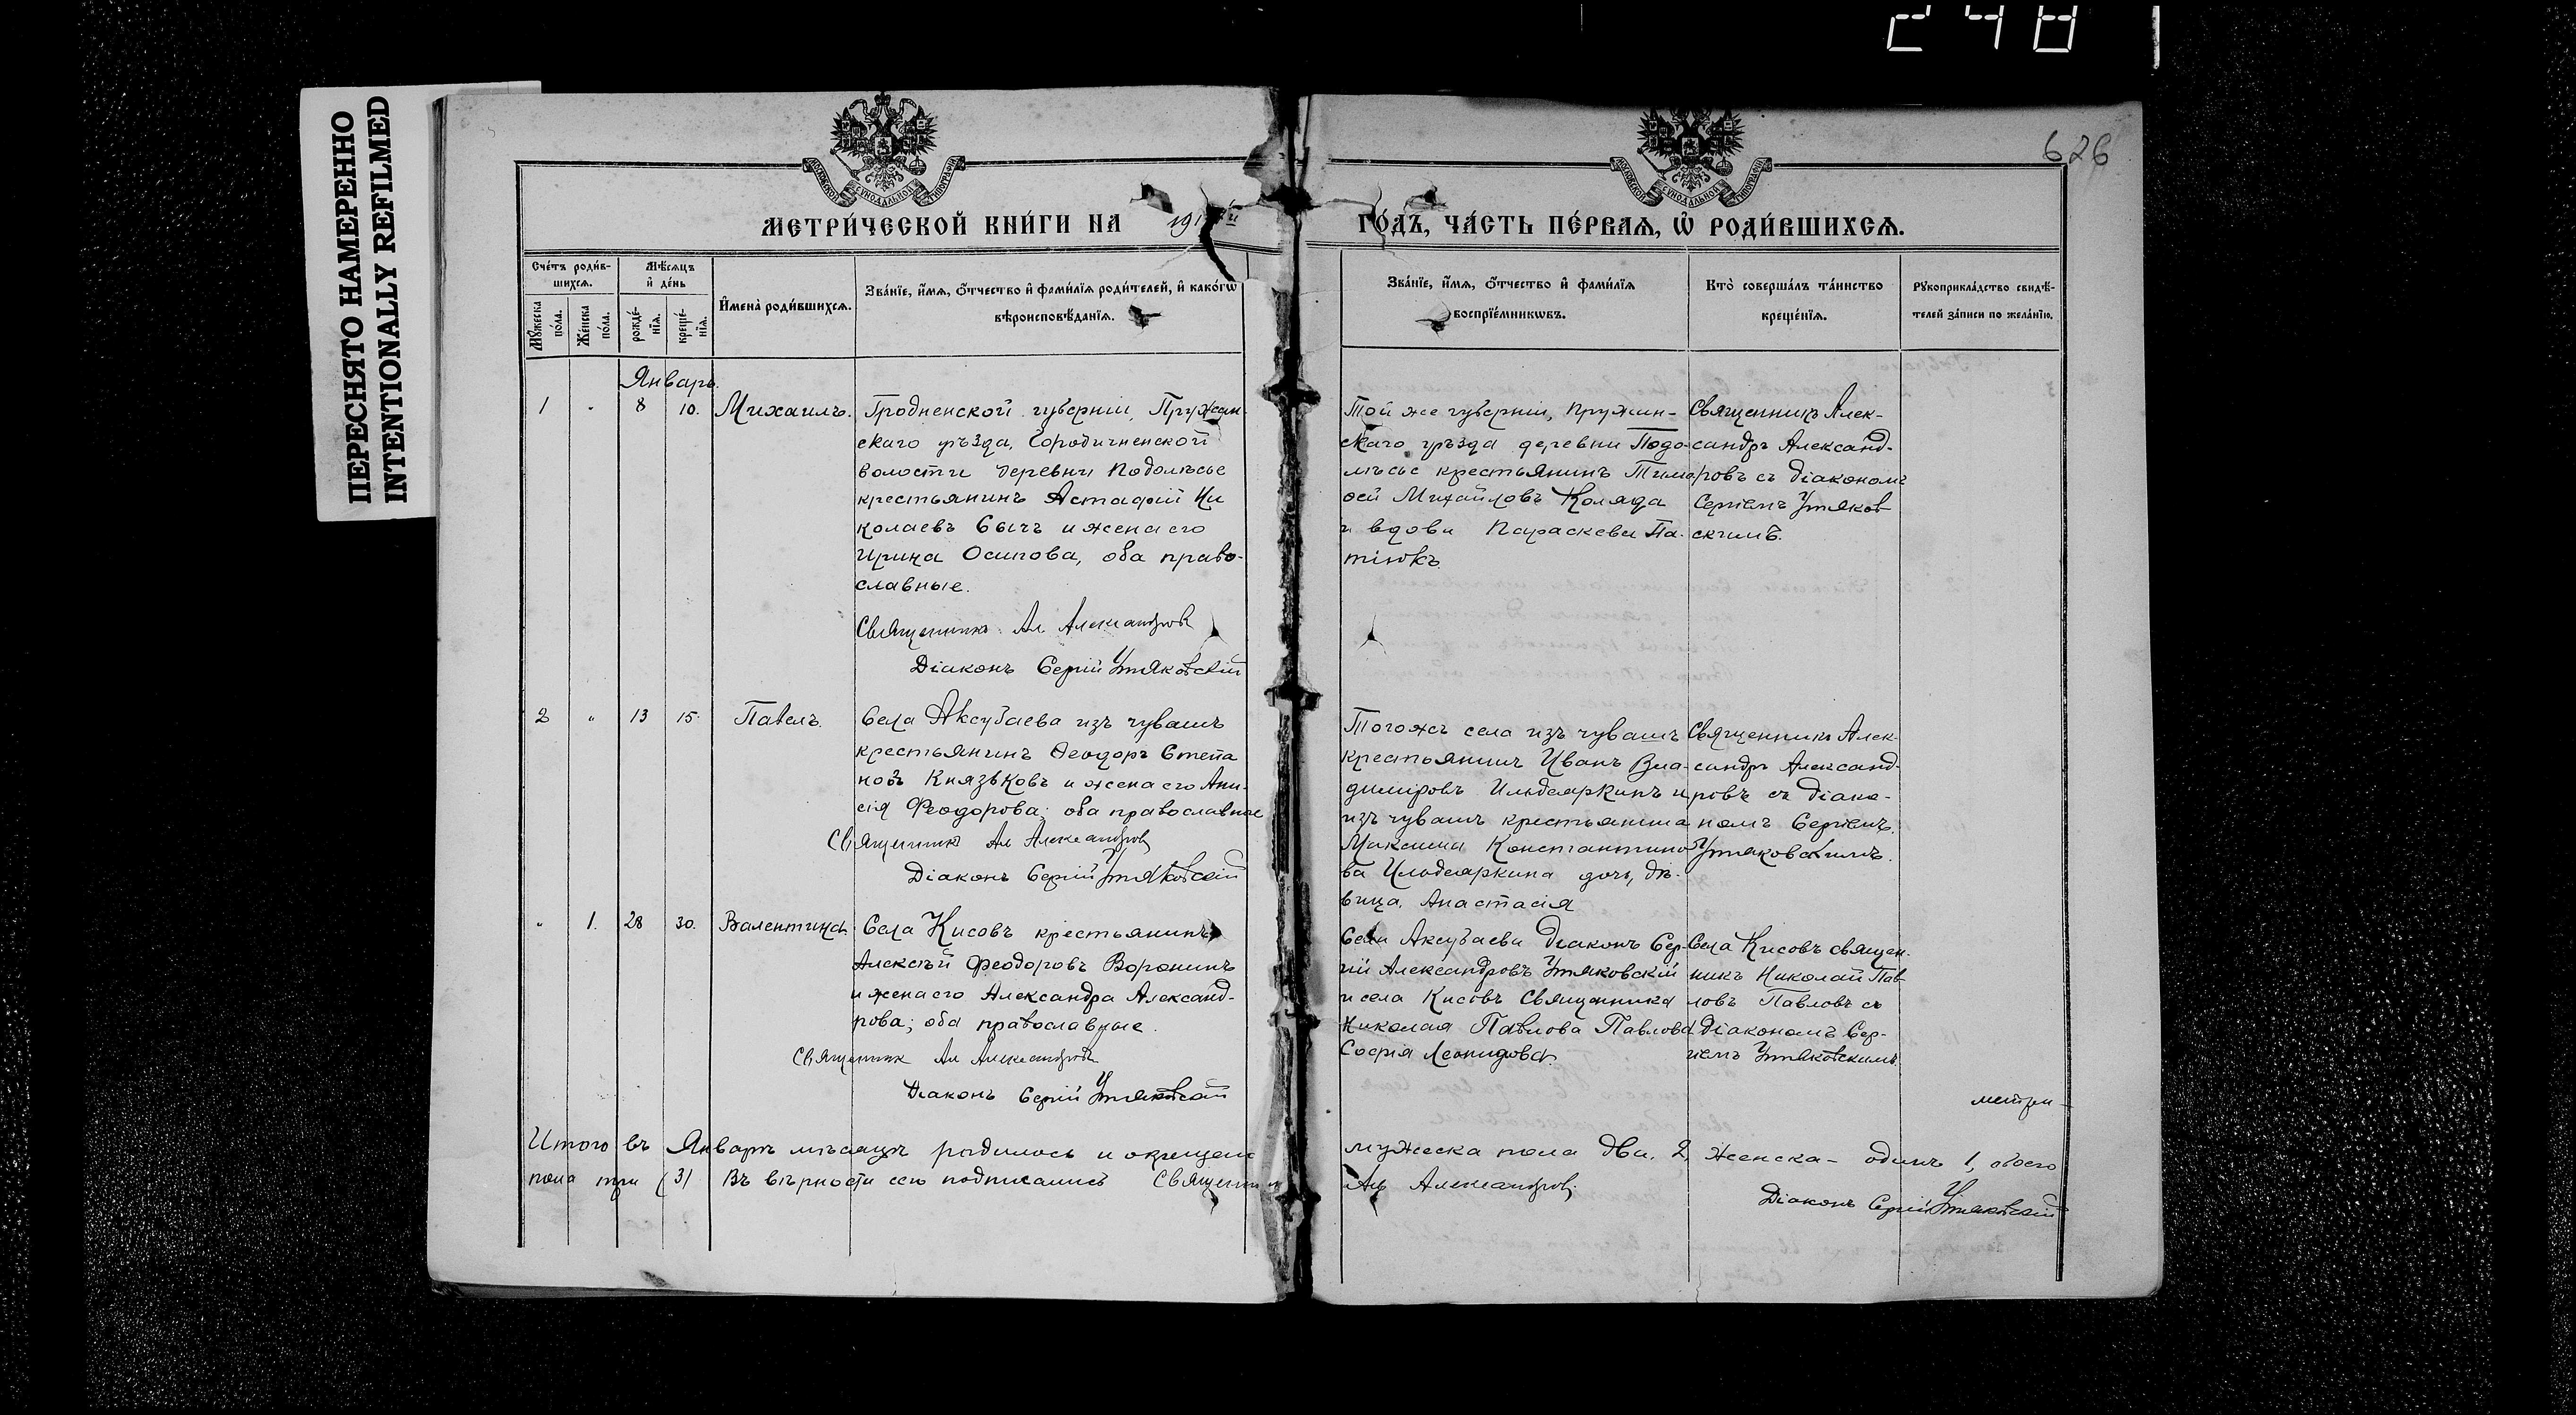 2481
ПЕРЕСНЯТО НАМЕРЕННО
INTENTIONALLY REFILMED
626
МОСКОВСКОЙ СѴНОДАЛЬНОЙ ТИПОГРАФІИ
МОСКОВСКОЙ СѴНОДАЛЬНОЙ ТИПОГРАФІИ
МЕТРИ́ЧЕСКОЙ КНИ́ГИ НА 191
ГО́ДЪ, ЧА́СТЬ ПЕ́РВАѦ, Ѡ РОДИ́ВШИХСѦ.
Сче́тъ роди́в-
шихсѧ.
Мꙋ́жеска по́ла.
Же́нска по́ла.
Мѣ́сѧцъ
и҆ де́нь
рожде́-
нїѧ.
креще́-
нїѧ.
И҆мена̀ роди́вшихсѧ.
Зва́нїе, и҆́мѧ, ѻ҆́тчество и҆ фами́лїѧ роди́телей, и҆ како́гѡ
вѣроисповѣ́данїѧ.
Зва́нїе, и҆́мѧ, ѻ҆́тчество и҆ фами́лїѧ
воспрїе́мникѡвъ.
Кто̀ соверша́лъ та́инство
креще́нїѧ.
Рꙋкоприкла́дство свидѣ́-
телей за́писи по жела́нїю.
Январь.
1 " 8 10. Михаилъ.
Гродненской губерніи, Пружан-
скаго уѣзда, Городичненской
волости деревни Подолѣсье
крестьянинъ Астафій Ни
колаевъ Бычъ и жена его
Ирина Осипова, оба право-
славные.
Священникъ Ал Александровъ
Діаконъ Сергій Утяковскій
Той же губерніи, Пружан-
скаго уѣзда деревни Подо-
лѣсье крестьянинъ Тимо
ѳей Михайловъ Коляда
и вдова Параскева Па-
тіюкъ.
Священникъ Алек-
сандръ Александ-
ровъ съ діакономъ
Сергіемъ Утяков
скимъ.
2 " 13 15. Павелъ.
Села Аксубаева изъ чувашъ
крестьянинъ Ѳеодоръ Степа
новъ Князьковъ и жена его Ани-
сія Феодорова; оба православные
Священникъ Ал Александровъ
Діаконъ Сергій Утяковскій
Того же села изъ чувашъ
крестьянинъ Иванъ Вла-
диміровъ Ильдеаркинъ и
изъ чувашъ крестьянина
Максима Константино
ва Ильдеаркина дочь, дѣ-
вица, Анастасія
Священникъ Алек-
сандръ Александ-
ровъ съ діако-
номъ Сергіемъ
Утяковскимъ.
" 1. 28 30. Валентина.
Села Кисовъ крестьянинъ
Алексѣй Феодоровъ Воронинъ
и жена его Александра Александ-
рова; оба православные.
Священник Ал Александровъ
Діаконъ Сергій Утяковскій
Села Аксубаева Діаконъ Сер-
гій Александровъ Утяковскій
и села Кисовъ Священника
Николая Павлова Павлова
Софія Леонидова.
Села Кисовъ священ-
никъ Николай Пав-
ловъ Павловъ съ
діакономъ Сер-
гіемъ Утяковскимъ.
Итого въ Январѣ мѣсяцѣ родилось и окрещено
пола три (3) Въ вѣрности сего подписались Священник
мужеска пола два. 2, женска - одинъ 1, обоего
Ал Александровъ.
Діаконъ Сергій Утяковскій